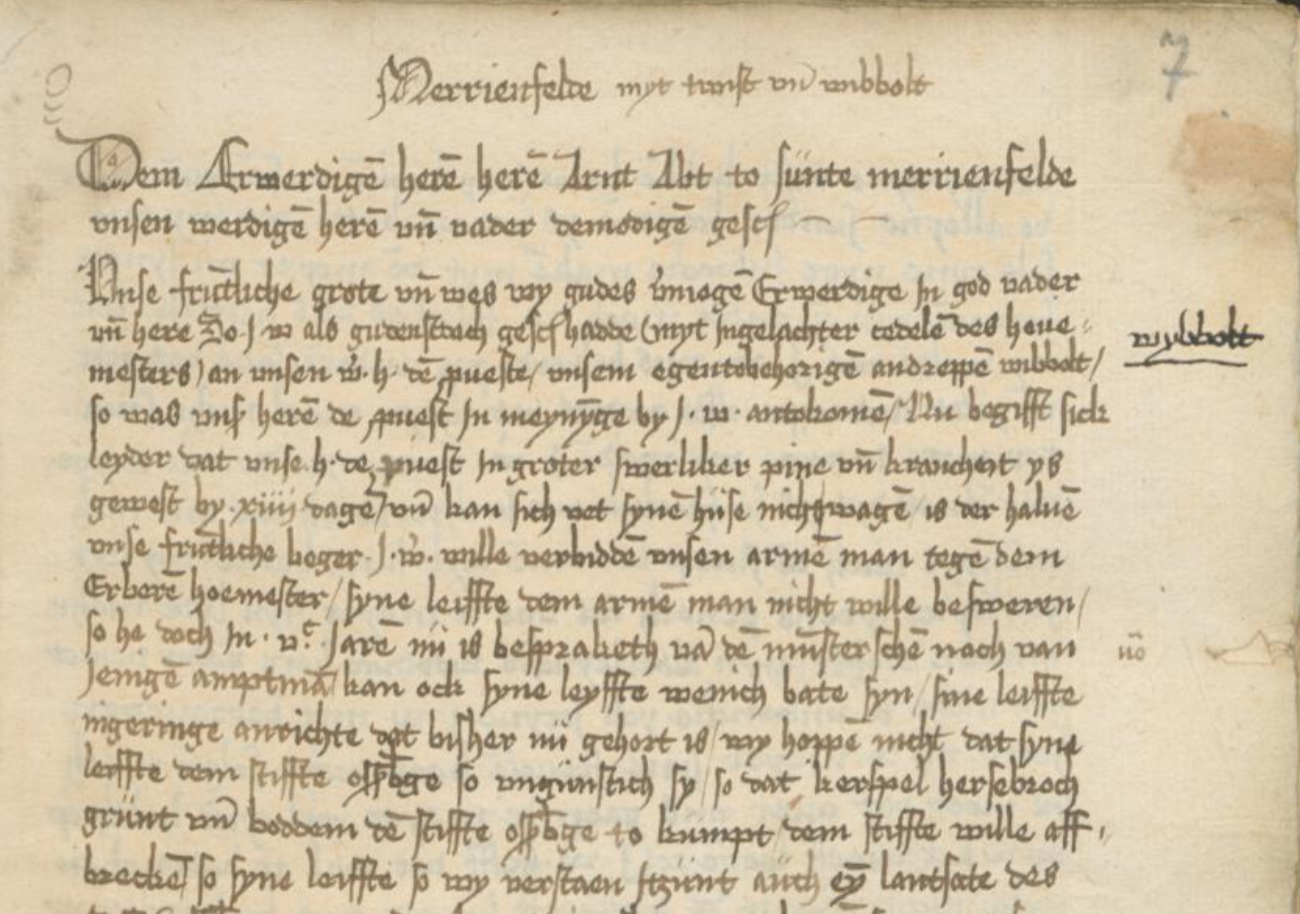 7
Merrienfelde myt twist vn̄ wibbolt
Dem Erwerdigē herē herē Arnt Abt to sünte merrienfelde
vnsen werdigē herē vn̄ vader demodigē gescʃ
Vnse frūtliche grote vn̄ wes wy gudes v̓mogē Erwerdige In god vader
vn̄ here So J w als gudenstach gescʃ hadde (myt Ingelachter cedelē des houe⸗
mesters) an vnsen w. h. dē ꝓueste / vnsem egentobehorigē andreppē wibbolt /
wybbolt
so was vns͛ herē de ꝓuest In meynȳge by J. w. antokomē / Nu begifft sick
leyder dat vnse h. de ꝓuest In groter swerliker pine vn̄ kranchert ys
gewest by xiiij dagē / vn̄ kan sich vet synē hüse nicht wagē is der haluē
vnse frūtliche beger J. w. wille verbiddē vnsen armē man tegē dem
Erberē hoemester / syne leiffte dem armē man nicht wille besweren /
so he doch In vᶜ Jarē nü is bespraketh vā dē mūsterschē noch van
Jenigē amptmā / kan ock syne leyffte wenich bate syn / sine leiffte
nigeringe anrichte dat bisher nü gehort is / wy hoppē nicht dat syne
leiffte dem stiffte oszbge so vngünstich sy / so dat kerspel hersebroch
grünt vn̄ boddem dē stiffte oszbge to kumpt dem stiffte wille aff⸗
breckē / so syne leiffte so wy verstaen itzunt auch eȳ lantsate des